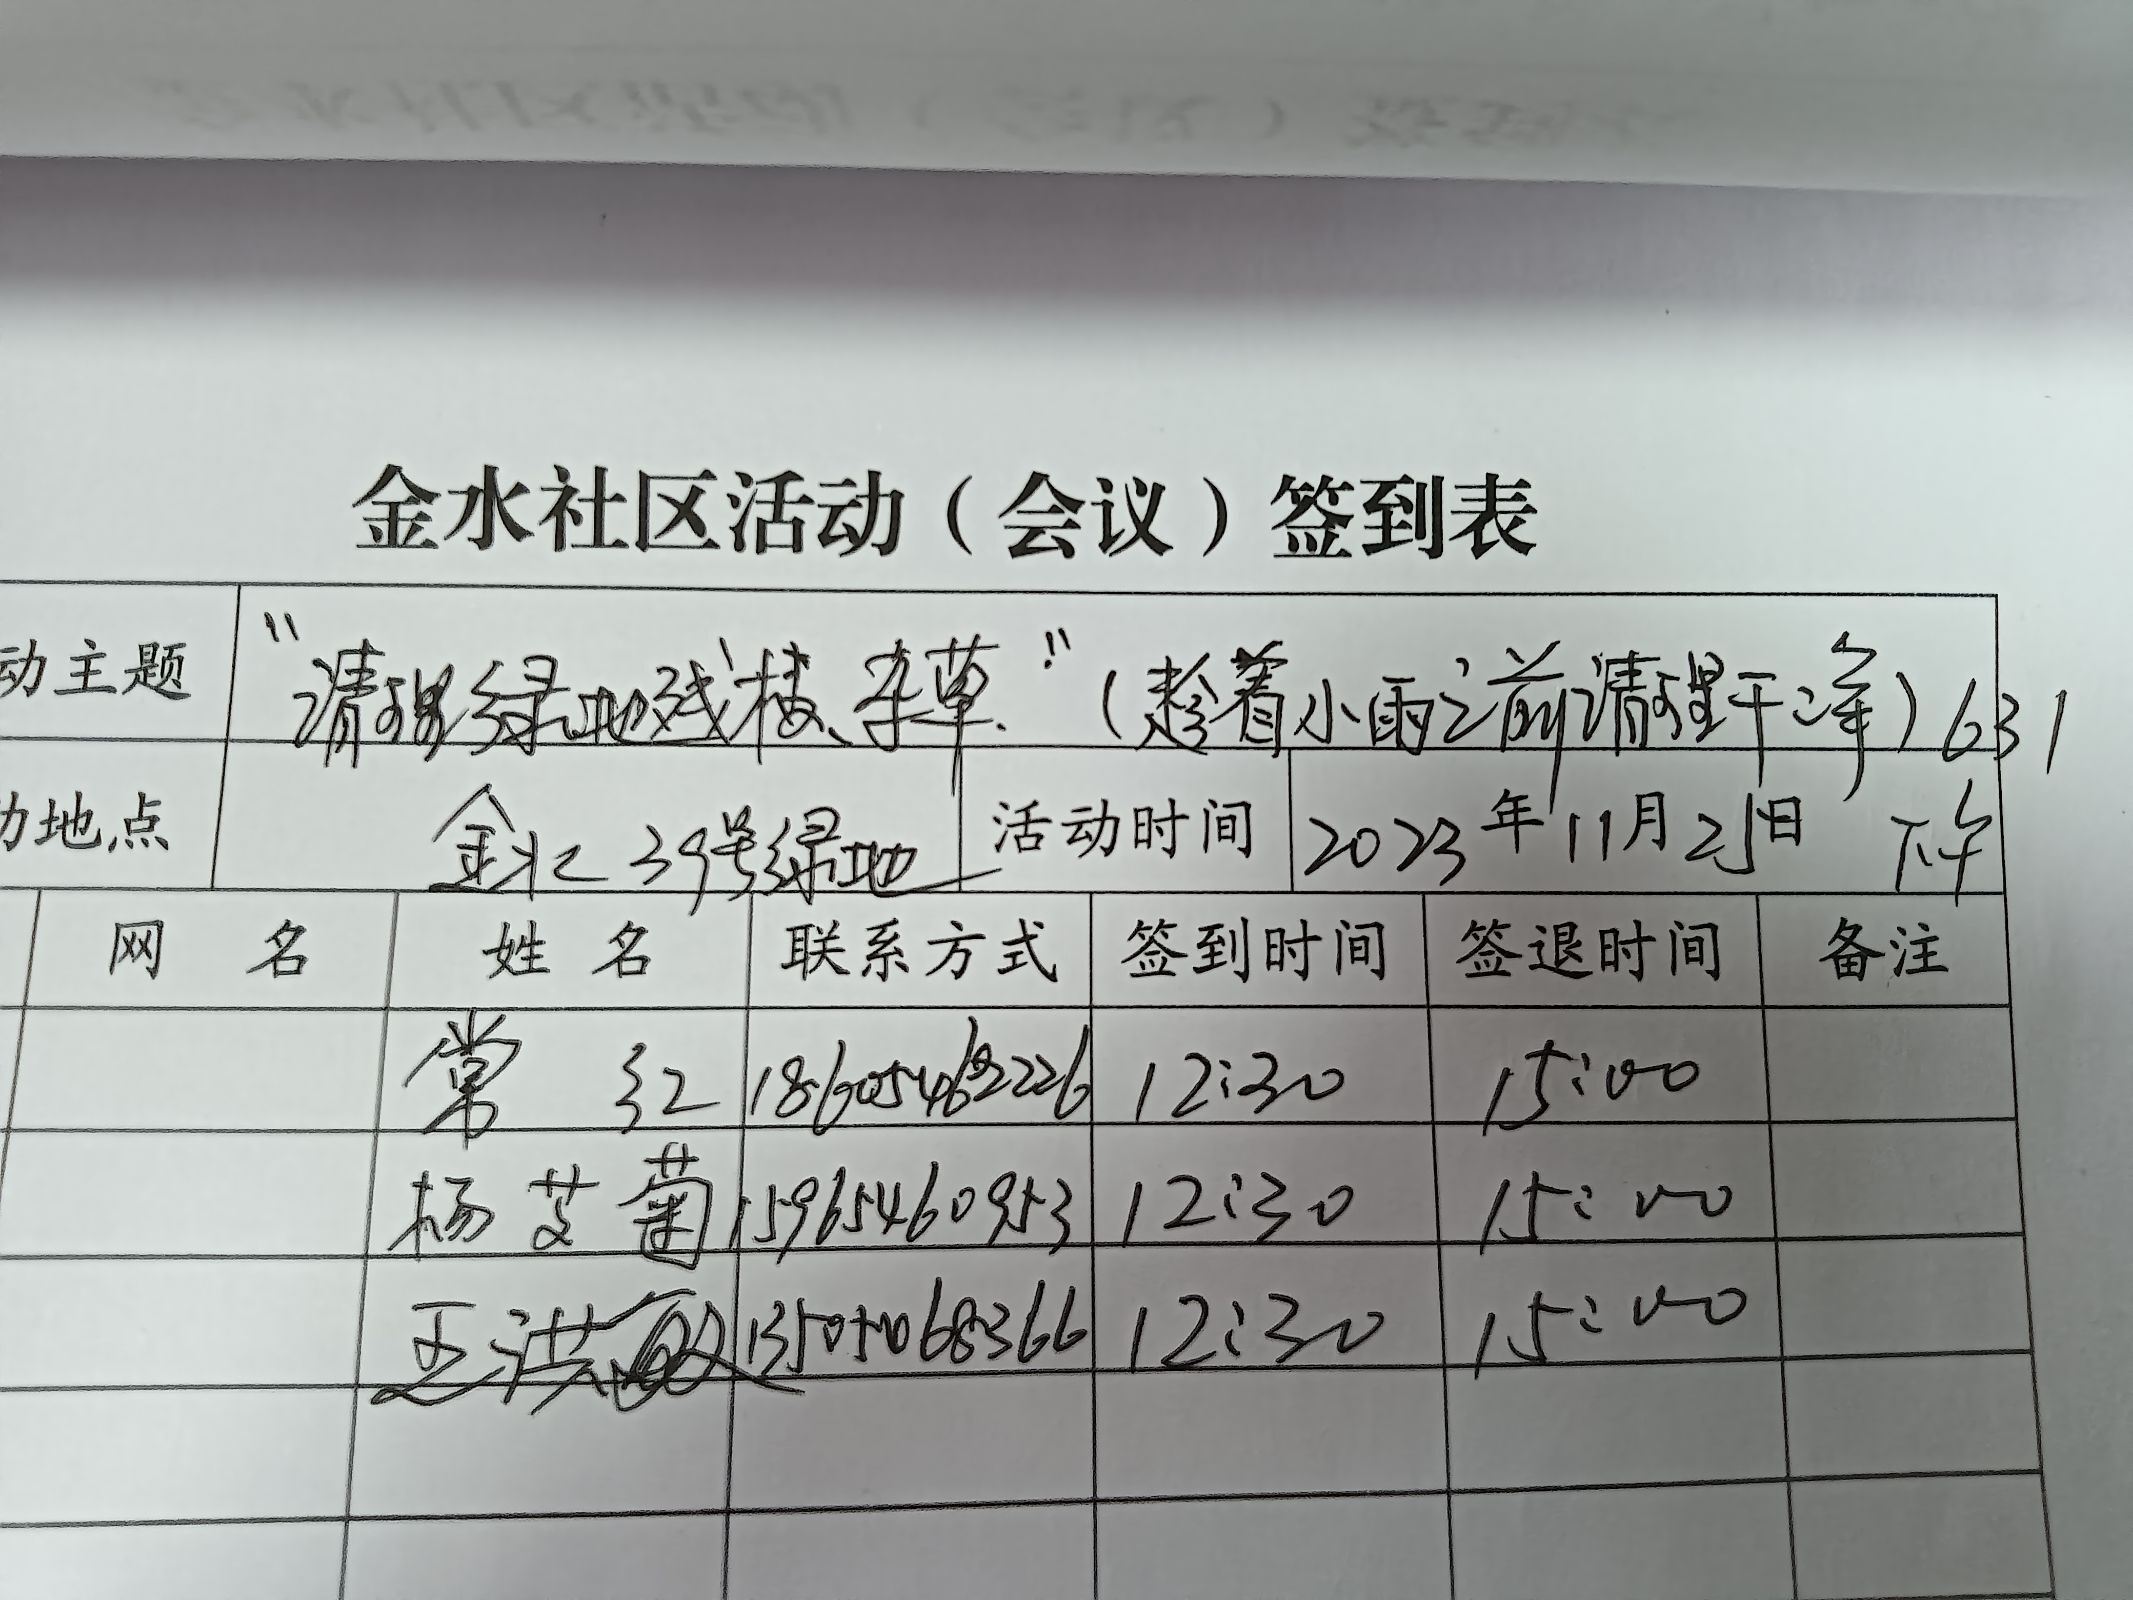 金水社区活动（会议）签到表
动主题 “清理绿地残楼、杂草.”（趁着小雨之前清理干净）631
动地点 金汇39号绿地 活动时间 2023年11月25日 下午
网 名 姓 名 联系方式 签到时间 签退时间 备注
常 红 18605462226 12:30 15:00
杨艾菊 15965460953 12:30 15:00
王洪敏 13505468366 12:30 15:00